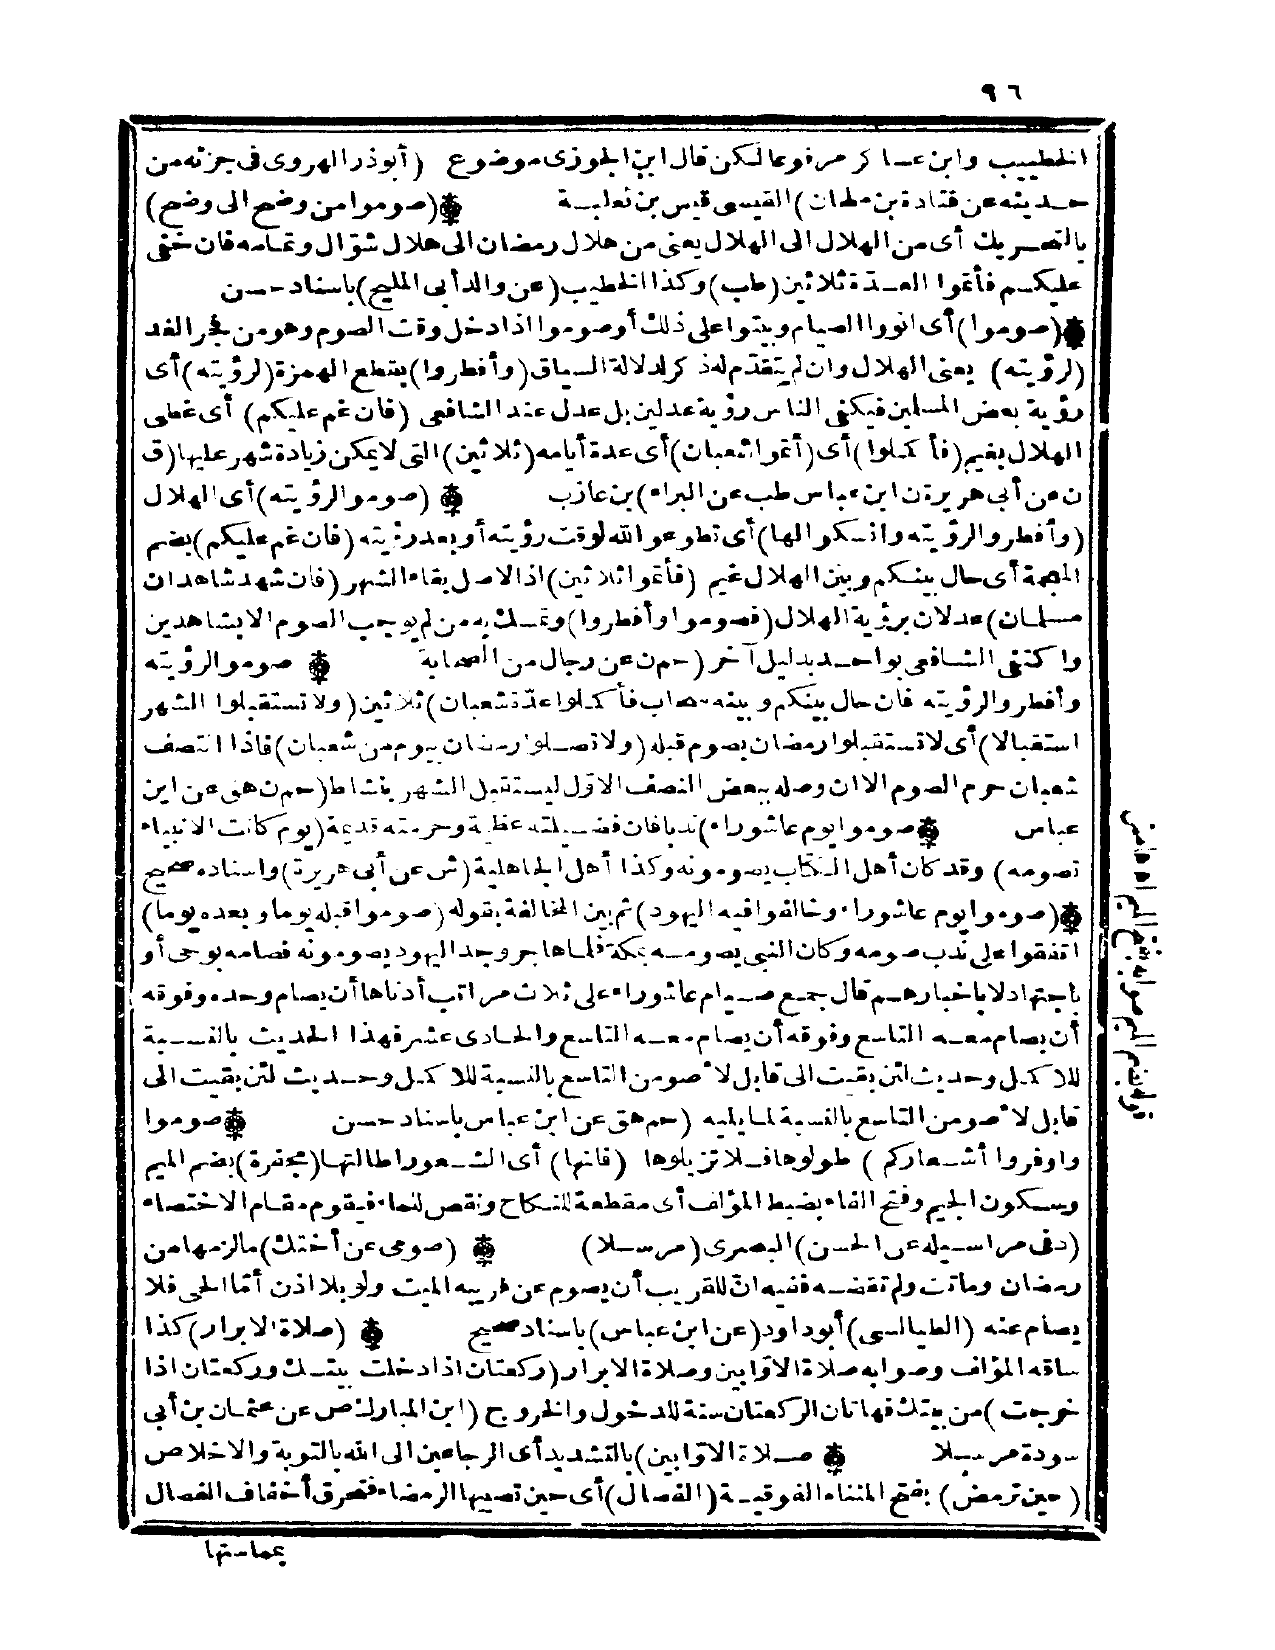 ٩٦
الخطيب وابن عساكر مرفوعا لكن قال ابن الجوزى موضوع (أبوذر الهروى فى جزئه من
حديثه عن قتادة بن ملحان) القيسى قيس بن ثعلبة (صوموا من وضح الى وضح)
بالتحريك أى من الهلال الى الهلال يعنى من هلال رمضان الى هلال شوّال وتمامه فان خفى
عليكم فأتموا العدّة ثلاثين (طب) وكذا الخطيب (عن والد أبى المليح) باسناد حسن
(صوموا) أى انووا الصيام وبيتوا على ذلك أو صوموا اذا دخل وقت الصوم وهو من فجر الغد
(لرؤيته) يعنى الهلال وان لم يتقدّم له ذكر لدلالة السياق (وأفطروا) بقطع الهمزة (لرؤيته) أى
رؤية بعض المسلمين فيكفى الناس رؤية عدلين بل عدل عند الشافعى (فان غم عليكم) أى غطى
الهلال بغيم (فأكملوا) أى (أتموا شعبان) أى عدة أيامه (ثلاثين) التى لا يمكن زيادة شهر عليها (ق
ن عن أبى هريرة ن ابن عباس طب عن البراء) بن عازب (صوموا لرؤيته) أى الهلال
(وأفطروا لرؤيته وانسكوا لها) أى تطوعوا لله لوقت رؤيته أو بعد رؤيته (فان غم عليكم) بضم
المعجمة أى حال بينكم وبين الهلال غيم (فأتموا ثلاثين) اذ الاصل بقاء الشهر (فان شهد شاهدان
مسلمان) عدلان برؤية الهلال (فصوموا وأفطروا) وتمسك به من لم يوجب الصوم الا بشاهدين
واكتفى الشافعى بواحد بدليل آخر (حم ن عن رجال من الصحابة صوموا لرؤيته
وأفطروا لرؤيته فان حال بينكم وبينه سحاب فأكملوا عدّة شعبان) ثلاثين (ولا تستقبلوا الشهر
استقبالا) أى لا تستقبلوا رمضان بصوم قبله (ولا تصلوا رمضان بيوم من شعبان) فاذا انتصف
شعبان حرم الصوم الا ان وصله ببعض النصف الاوّل ليستقبل الشهر بنشاط (حم ن هق عن ابن
عباس صوموا يوم عاشوراء) ندبا فان فضيلته عظيمة وحرمته قديمة (يوم كانت الانبياء
تصومه) وقد كان أهل الكتاب يصومونه وكذا أهل الجاهلية (ش عن أبى هريرة) واسناده صحيح
(صوموا يوم عاشوراء وخالفوا فيه اليهود) ثم بين المخالفة بقوله (صوموا قبله يوما وبعده يوما)
اتفقوا على ندب صومه وكان النبى يصومه بمكة فلما هاجر وجد اليهود يصومونه فصامه بوحى أو
باجتهاد لا باخبارهم قال جمع صيام عاشوراء على ثلاث مراتب أدناها أن يصام وحده وفوقه
أن يصام معه التاسع وفوقه أن يصام معه التاسع والحادى عشر فهذا الحديث بالنسبة
للاكمل وحديث لئن بقيت الى قابل لأصومن التاسع بالنسبة للاكمل وحديث لئن بقيت الى
قابل لأصومن التاسع بالنسبة لما يليه (حم هق عن ابن عباس باسناد حسن صوموا
واوفروا أشعاركم) طولوها فلا تزيلوها (فانها) أى الشعور اطالتها (مجفرة) بضم الميم
وسكون الجيم وفتح الفاء بضبط المؤلف أى مقطعة للنكاح ونقص للماء فيقوم مقام الاختصاء
(د فى مراسيله عن الحسن) البصرى (مرسلا) (صومى عن أختك) ما لزمها من
رمضان وماتت ولم تقضه ففيه انّ للقريب أن يصوم عن قريبه الميت ولو بلا اذن أمّا الحى فلا
يصام عنه (الطيالسى) أبو داود (عن ابن عباس) باسناد صحيح (صلاة الابرار) كذا
ساقه المؤلف وصوابه صلاة الاوّابين وصلاة الابرار (ركعتان اذا دخلت بيتك وركعتان اذا
خرجت) من بيتك فهاتان الركعتان سنة للدخول والخروج (ابن المبارك ص عن عثمان بن أبى
سودة مرسلا صلاة الاوّابين) بالتشديد أى الرجاعين الى الله بالتوبة والاخلاص
(حين ترمض) بفتح المثناة الفوقية (الفصال) أى حين تصيبها الرمضاء فتحرق أخفاف الفصال
بماستها
قوله بضم الميم صوابه بفتح الميم اه هامش